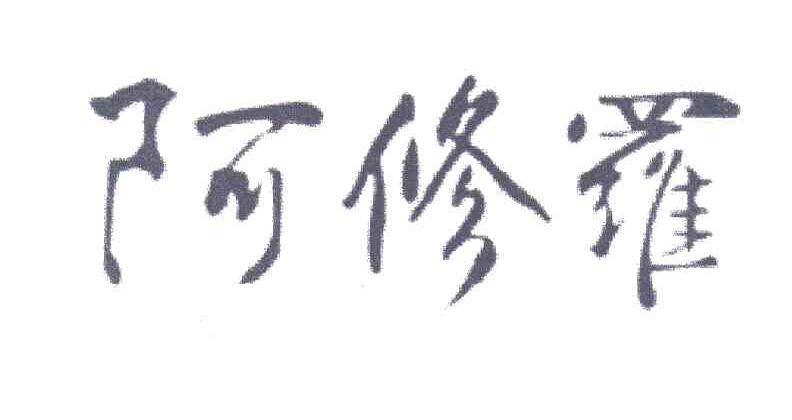 阿修羅